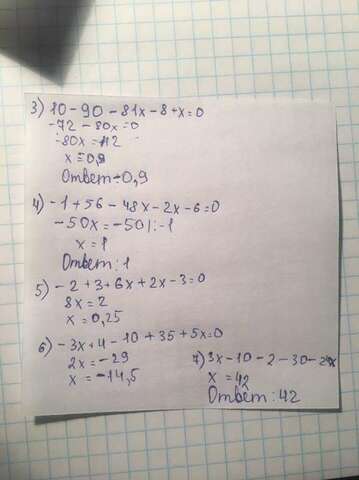 3) 10-90-81x-8+x=0
-72-80x=0
-80x=
x=0,9
Ответ-0,9
4) -1+56-48x-2x-6=0
-50x=-50|:-1
x=1
Ответ:1
5) -2+3+6x+2x-3=0
8x=2
x=0,25
6) -3x+4-10+35+5x=0
2x=-29
x=-14,5
7) 3x-10-2-30-2x
x=42
Ответ:42